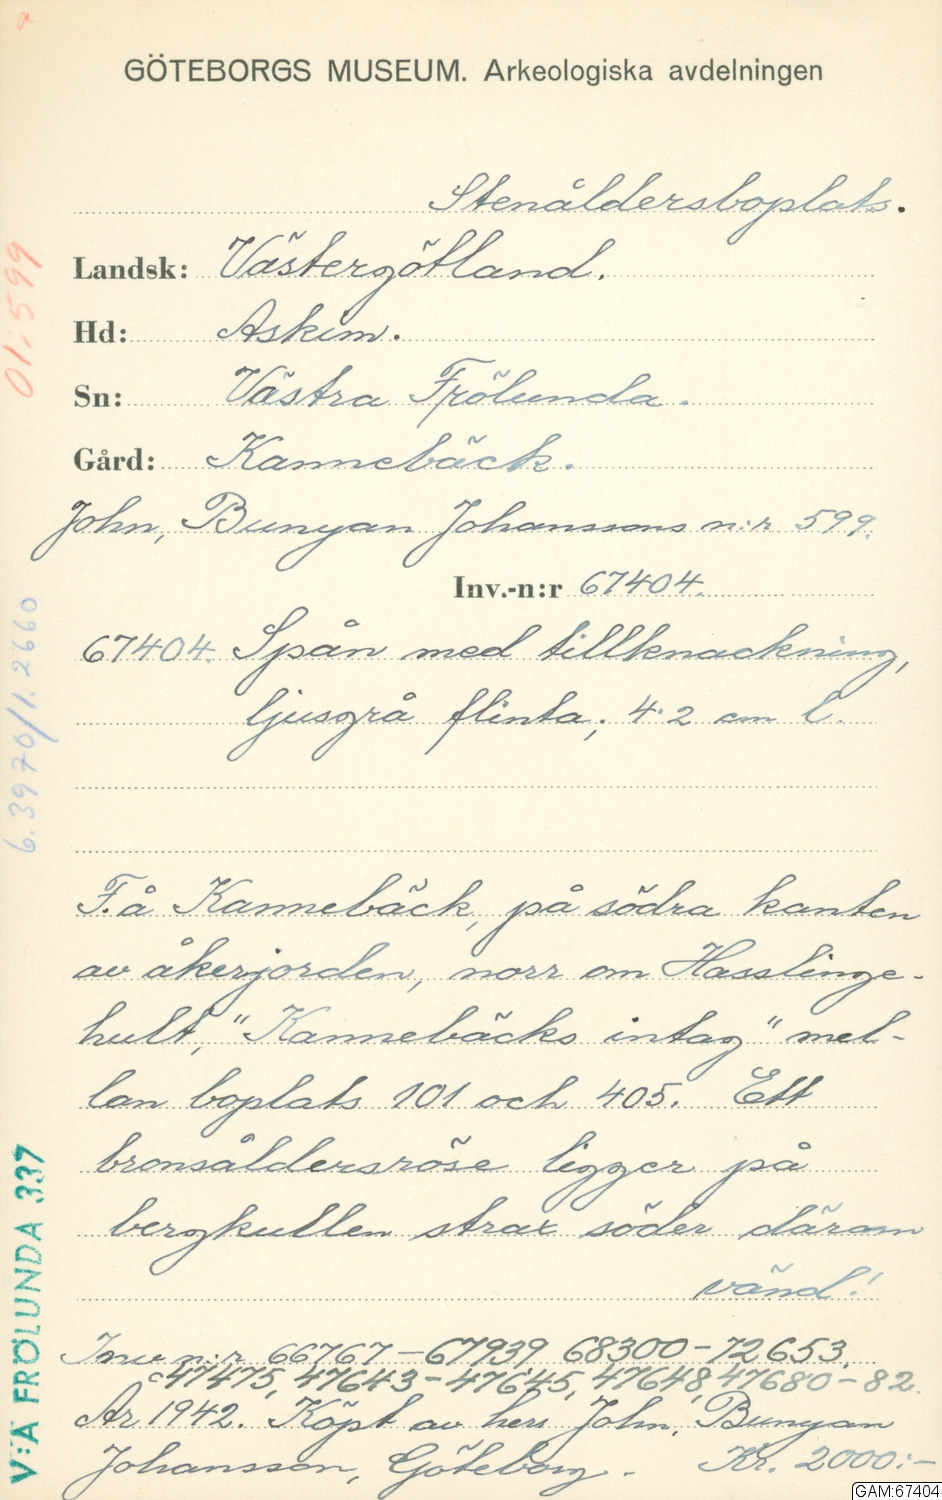 GÖTEBORGS MUSEUM. Arkeologiska avdelningen
Stenåldersboplats.
Landsk: Västergötland.
Hd: Askim.
Sn: Västra Frölunda.
Gård: Kannebäck.
John, Bunyan Johanssons n:r 599.
Inv.-n:r 67404.
67404. Spån med tillknackning,
ljusgrå flinta; 4.2 cm l.
F. å Kannebäck, på södra kanten
av åkerjorden, norr om Hasslinge-
hult, "Kannebäcks intag" mel-
lan boplats 101 och 405. Ett
bronsåldersröse ligger på
bergkullen strax söder därom
vänd!
Inv n:r 66767-67939 68300-72653,
47475, 47643-47645, 47648, 47680-82.
År 1942. Köpt av herr John, Bunyan
Johansson, Göteborg. Kr. 2000:-
01:599
6.3970/1.2660
V:A FRÖLUNDA 337
GAM:67404